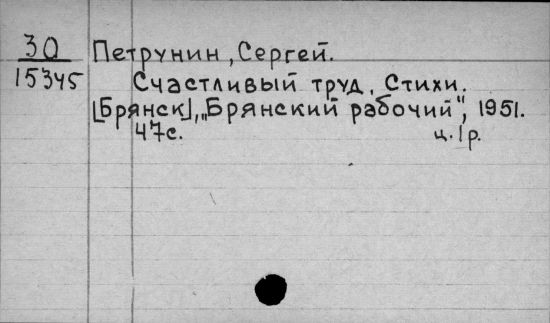 30
15345
Петрунин, Сергей.
Счастливый труд. Стихи.
[Брянск], „Брянский рабочий", 1951.
47с. ц. 1 р.